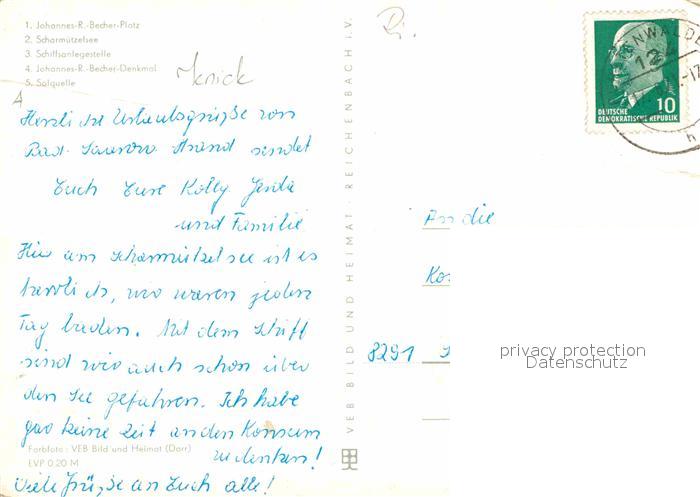 1. Johannes-R.-Becher-Platz
2. Scharmützelsee
3. Schiffsanlegestelle
4. Johannes-R.-Becher-Denkmal
5. Solquelle
Knick
Herzliche Urlaubsgrüße von
Bad-Saarow Strand sendet
Euch Eure Kolln. Gerda
und Familie
Hier am Scharmützelsee ist es
herrlich, wir waren jeden
Tag baden. Mit dem Schiff
sind wir auch schon über
den See gefahren. Ich habe
gar keine Zeit an den Konsum
zu denken!
Viele Grüße an Euch alle!
Farbfoto: VEB Bild und Heimat (Darr)
EVP 0,20 M
VEB BILD UND HEIMAT · REICHENBACH i.V.
Ri.
12
DEUTSCHE
DEMOKRATISCHE REPUBLIK
10
An die
8291
privacy protection
Datenschutz